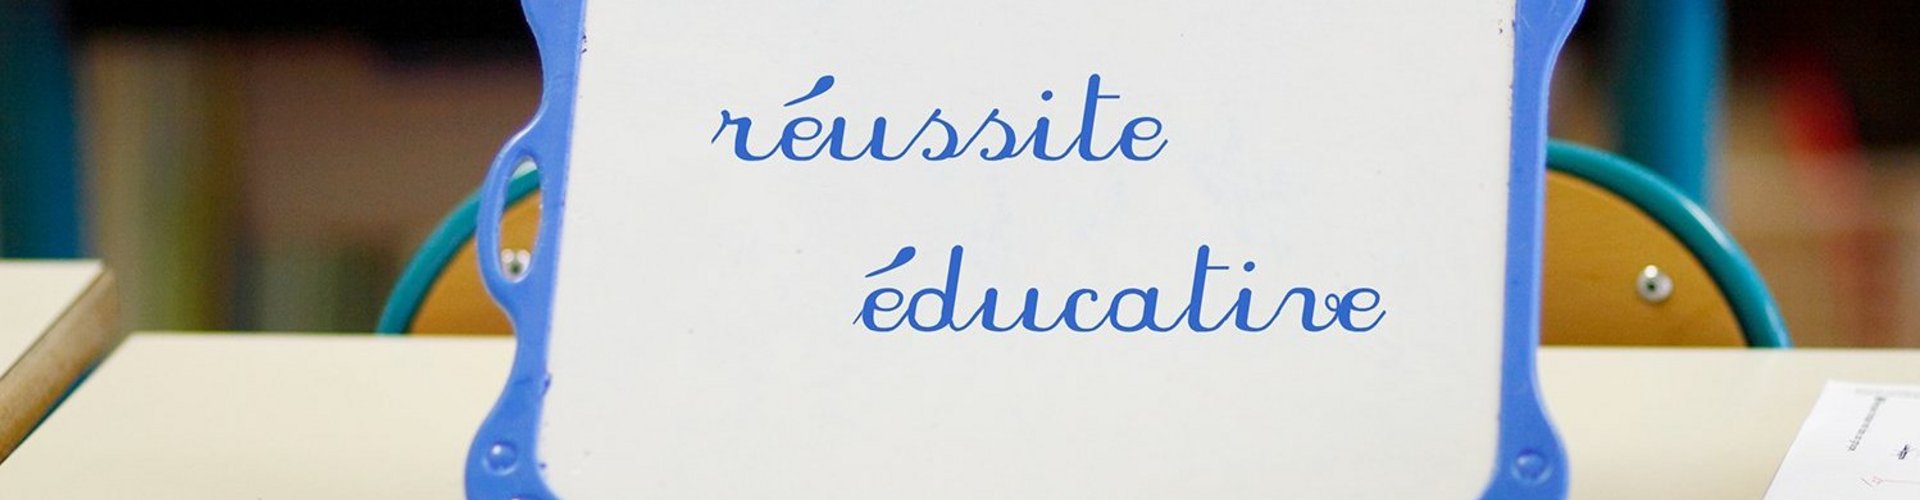 réussite
éducative